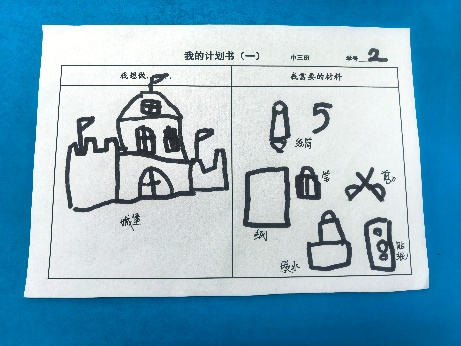 我的计划书（一） 中三班 学号 2
我想做...... 我需要的材料
5
纸筒
笔
剪刀
城堡
纸
胶水
贴纸